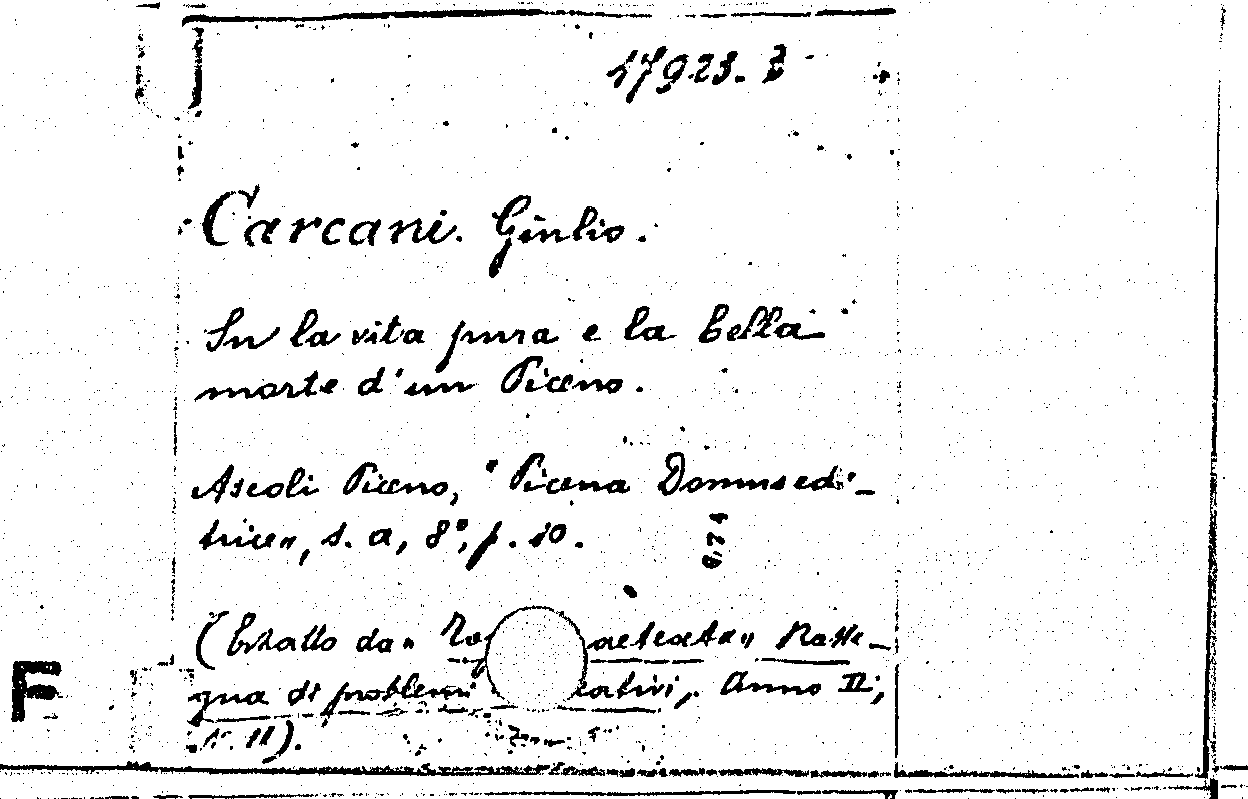 17923. B
Carcani. Giulio.
Su la vita pura e la bella
morte d'un Piceno.
Ascoli Piceno, "Picena Domus edi-
trice", s. a, 8°, p. 10.
674
(Estratto da " Rasse-
gna di problemi Anno II,
N. 11).
F